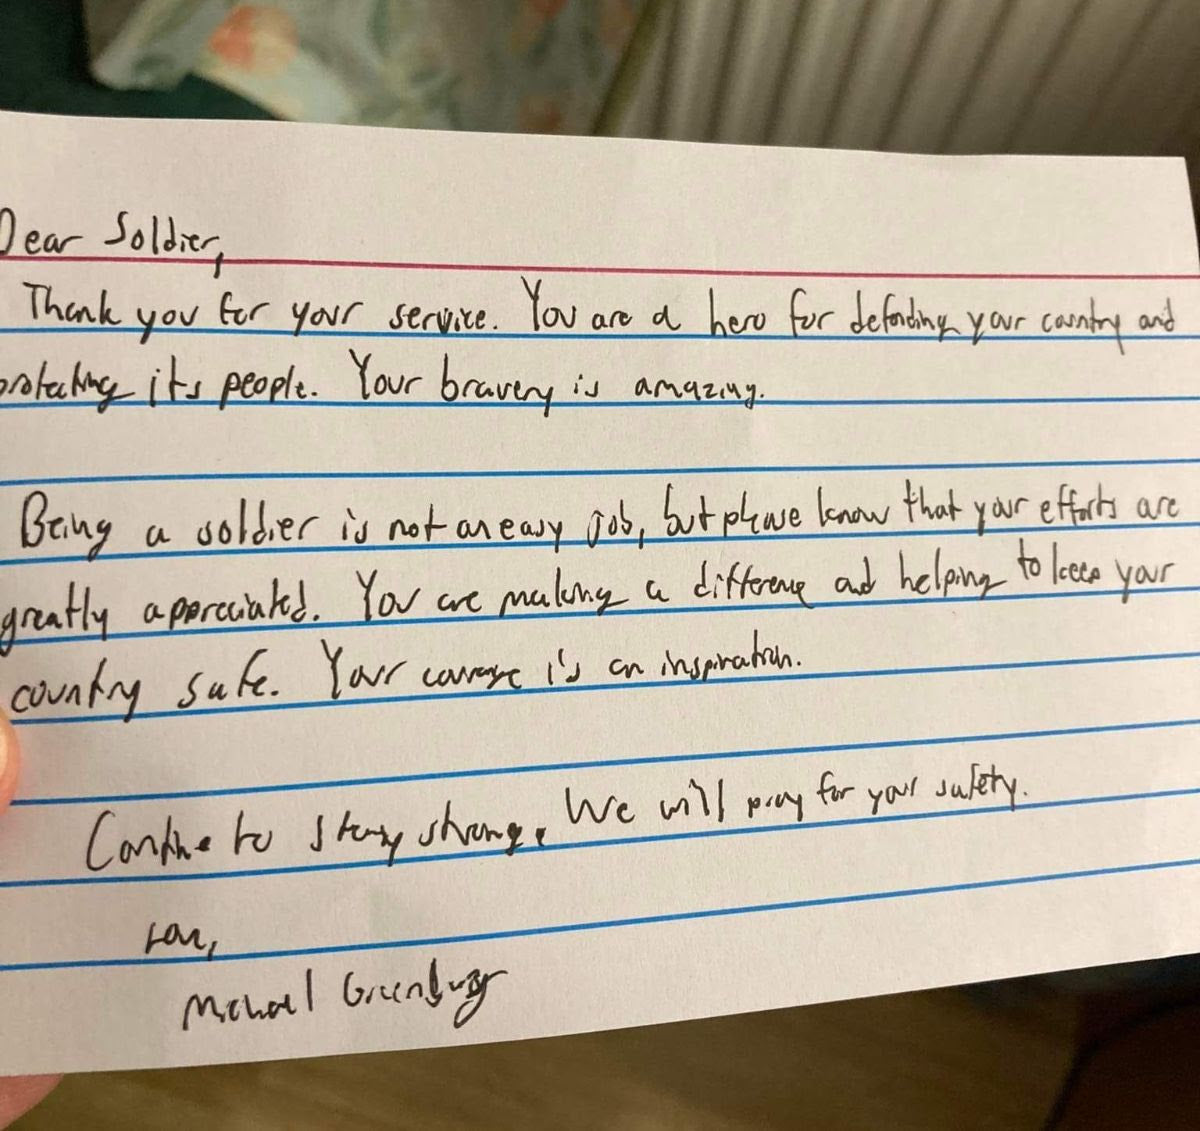 Dear Soldier,
Thank you for your service. You are a hero for defending your country and
protecting its people. Your bravery is amazing.
Being a soldier is not an easy job, but please know that your efforts are
greatly appreciated. You are making a difference and helping to keep your
country safe. Your courage is an inspiration.
Continue to stay strong. We will pray for your safety.
Michael Greenburg